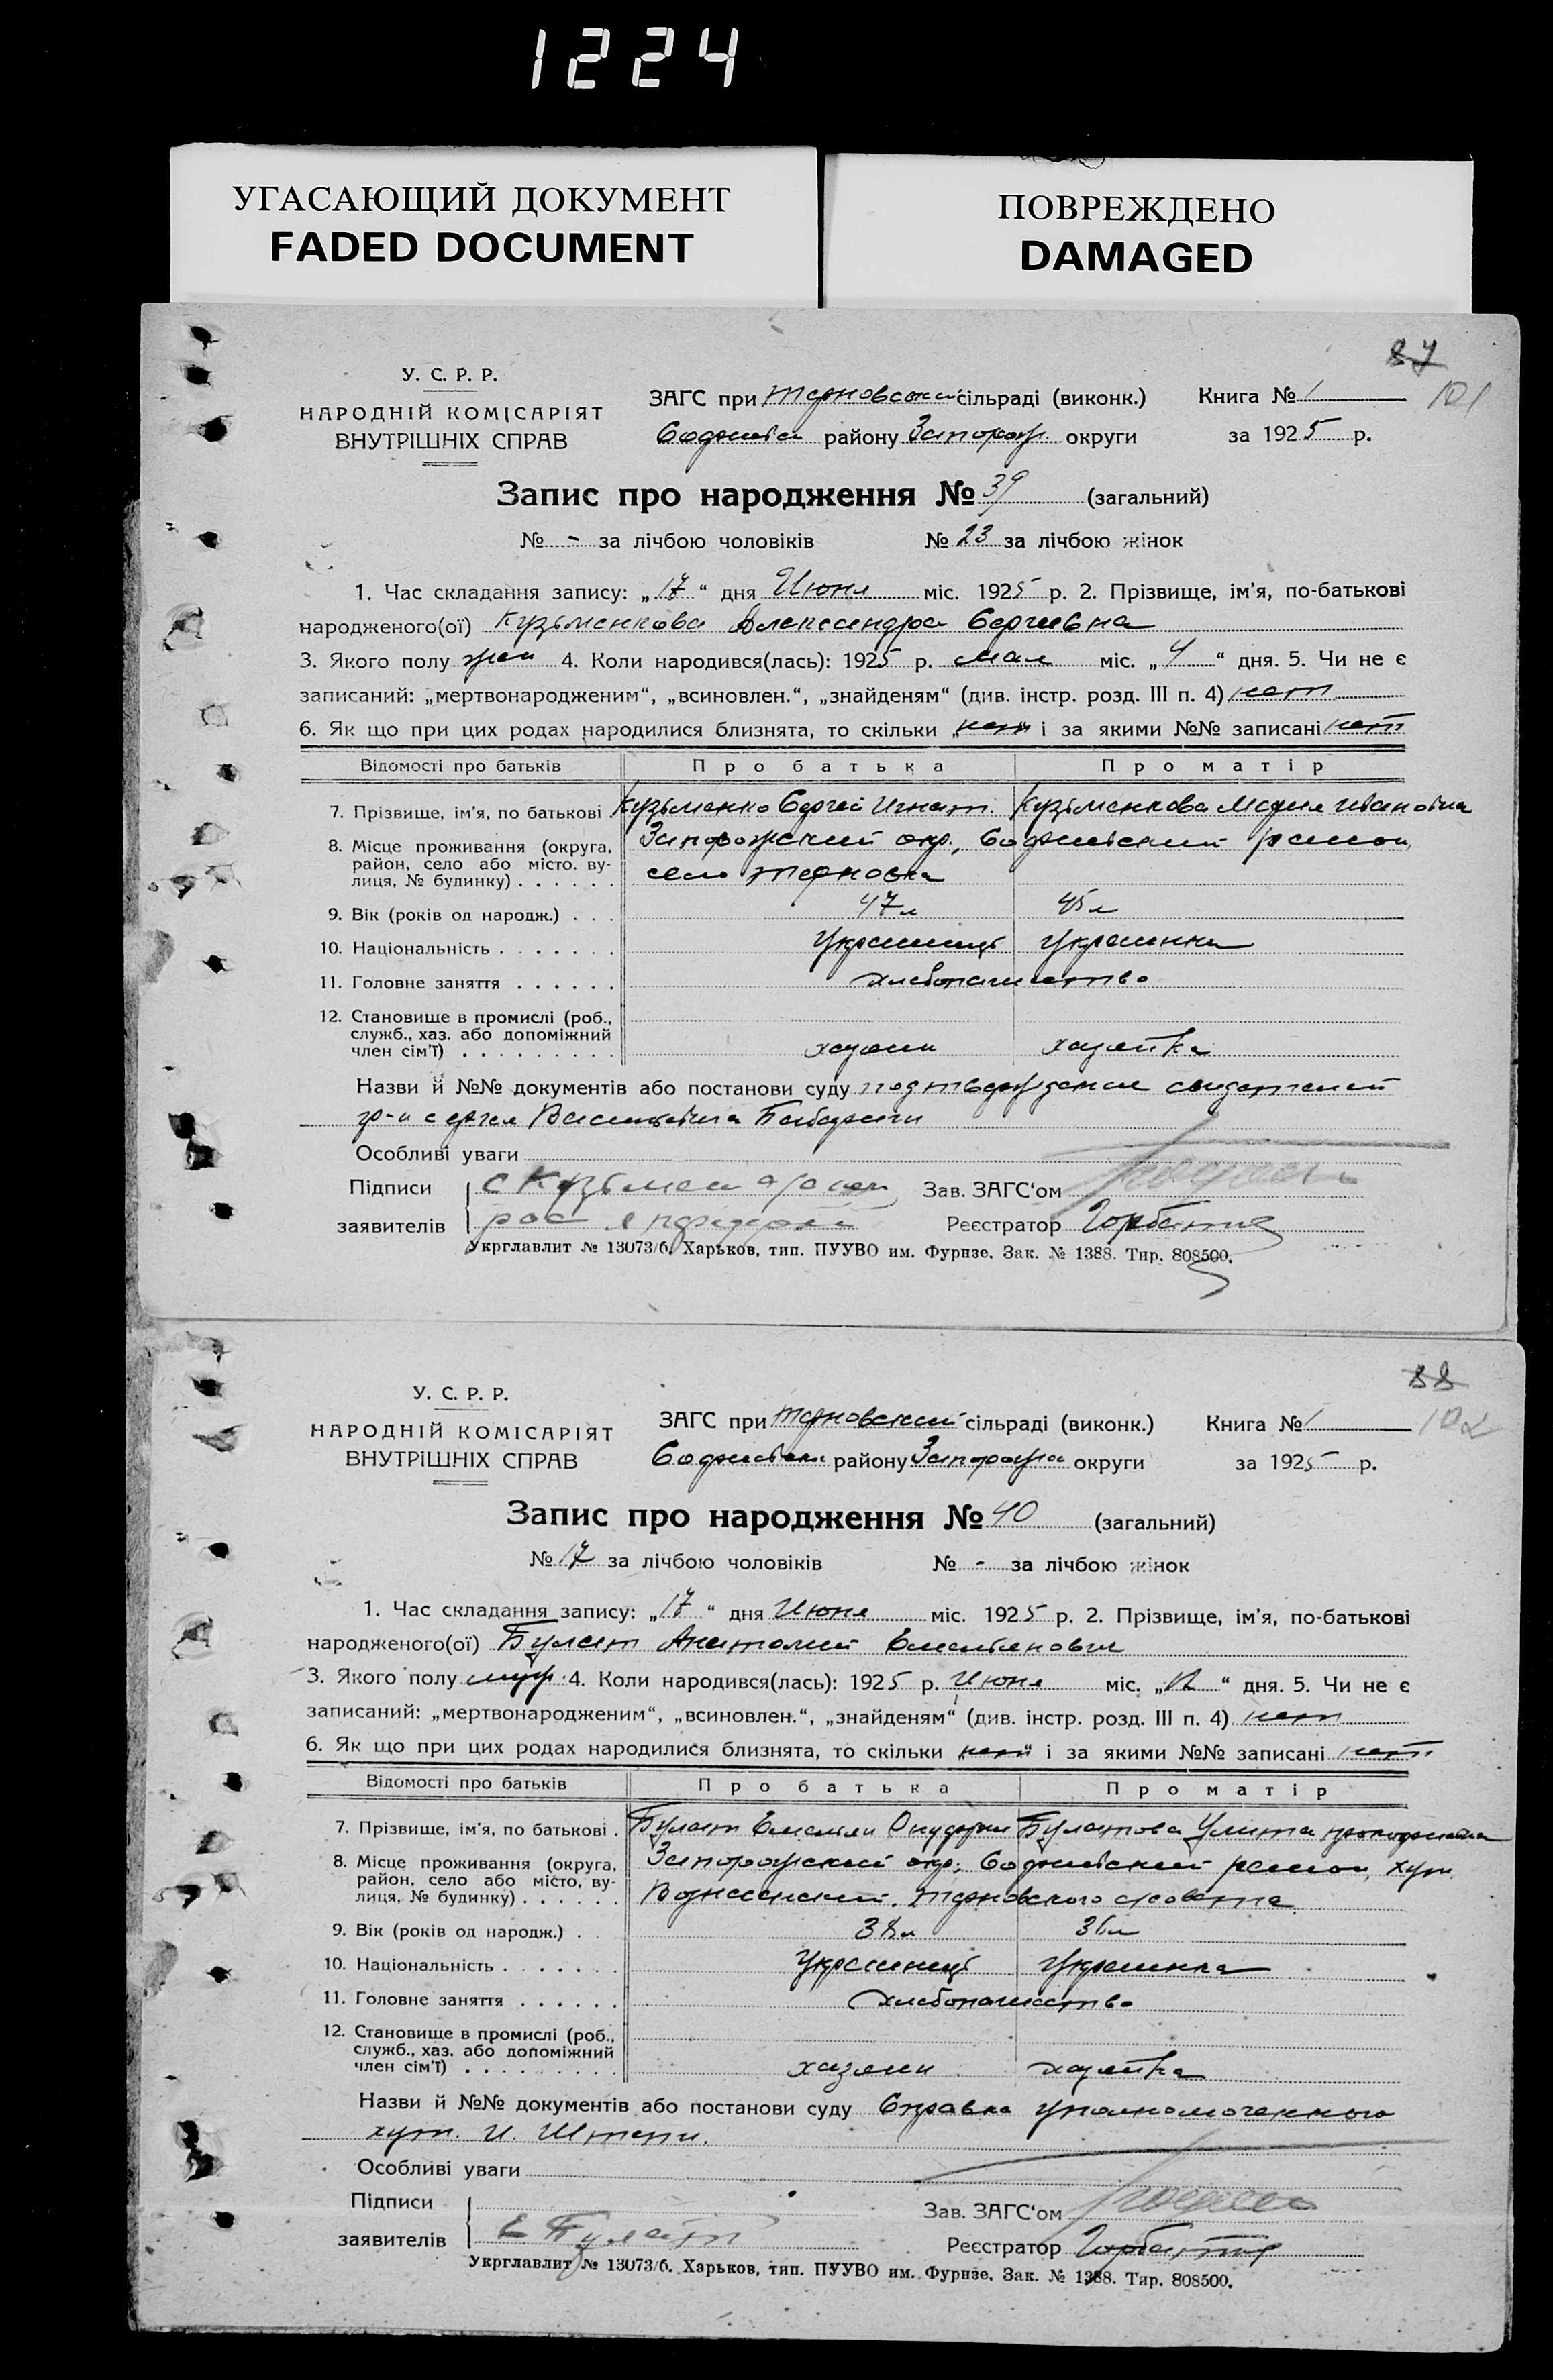 1224
УГАСАЮЩИЙ ДОКУМЕНТ
FADED DOCUMENT
ПОВРЕЖДЕНО
DAMAGED
87
101
У. С. Р. Р.
НАРОДНІЙ КОМІСАРІЯТ
ВНУТРІШНІХ СПРАВ
ЗАГС при Терновской сільраді (виконк.) Книга № 1
району Запорож. округи за 1925 р.
Запис про народження № 39 (загальний)
№ - за лічбою чоловіків № 23 за лічбою жінок
1. Час складання запису: „17“ дня Июня міс. 1925 р. 2. Прізвище, ім'я, по-батькові
народженого(ої) Кузьменкова Александра Сергиевна
3. Якого полу жен 4. Коли народився(лась): 1925 р. мая міс. „4“ дня. 5. Чи не є
записаний: „мертвонародженим“, „всиновлен.“, „знайденям“ (див. інстр. розд. III п. 4) нет
6. Як що при цих родах народилися близнята, то скільки „нет“ і за якими №№ записані нет
Відомості про батьків Про батька Про матір
7. Прізвище, ім'я, по батькові Кузьменко Сергей Игнат. Кузьменкова Мария Ивановна
8. Місце проживання (округа, район, село або місто, вулиця, № будинку) . . . . . . Запорожский окр., район,
село Терновка
9. Вік (років од народж.) . . . 47 л 45 л
10. Національність . . . . . . . Украинец Украинка
11. Головне заняття . . . . . . хлебопашество
12. Становище в промислі (роб., служб., хаз. або допоміжний член сім'ї) . . . . . . . . . хазяин хазяйка
Назви й №№ документів або постанови суду подтверждение свидетелей
гр-н Сергея Васильевича
Особливі уваги
Підписи
заявителів
С Кузьмен
Зав. ЗАГС'ом
Реєстратор
Укрглавлит № 13073/б. Харьков, тип. ПУУВО им. Фурнзе. Зак. № 1388. Тир. 808500.
88
102
У. С. Р. Р.
НАРОДНІЙ КОМІСАРІЯТ
ВНУТРІШНІХ СПРАВ
ЗАГС при Терновский сільраді (виконк.) Книга № 1
району Запорож округи за 1925 р.
Запис про народження № 40 (загальний)
№ 17 за лічбою чоловіків № - за лічбою жінок
1. Час складання запису: „17“ дня Июня міс. 1925 р. 2. Прізвище, ім'я, по-батькові
народженого(ої) Булат Анатолий Емельянович
3. Якого полу муж. 4. Коли народився(лась): 1925 р. Июня міс. „12“ дня. 5. Чи не є
записаний: „мертвонародженим“, „всиновлен.“, „знайденям“ (див. інстр. розд. III п. 4) нет
6. Як що при цих родах народилися близнята, то скільки „нет“ і за якими №№ записані нет
Відомості про батьків Про батька Про матір
7. Прізвище, ім'я, по батькові . Булат Емельян Булатова Улита
8. Місце проживання (округа, район, село або місто, вулиця, № будинку) . . . . . . Запорожский окр., район, хут.
Вознесенский, Терновского с/совета
9. Вік (років од народж.) . 38 л 36 л
10. Національність . . . . . . . Украинец Украинка
11. Головне заняття . . . . . . хлебопашество
12. Становище в промислі (роб., служб., хаз. або допоміжний член сім'ї) . . . . . . . . . хазяин хазяйка
Назви й №№ документів або постанови суду Справка уполномоченного
хут. И. Штепи.
Особливі уваги
Підписи
заявителів
Е Булат
Зав. ЗАГС'ом
Реєстратор
Укрглавлит № 13073/б. Харьков, тип. ПУУВО им. Фурнзе. Зак. № 1388. Тир. 808500.